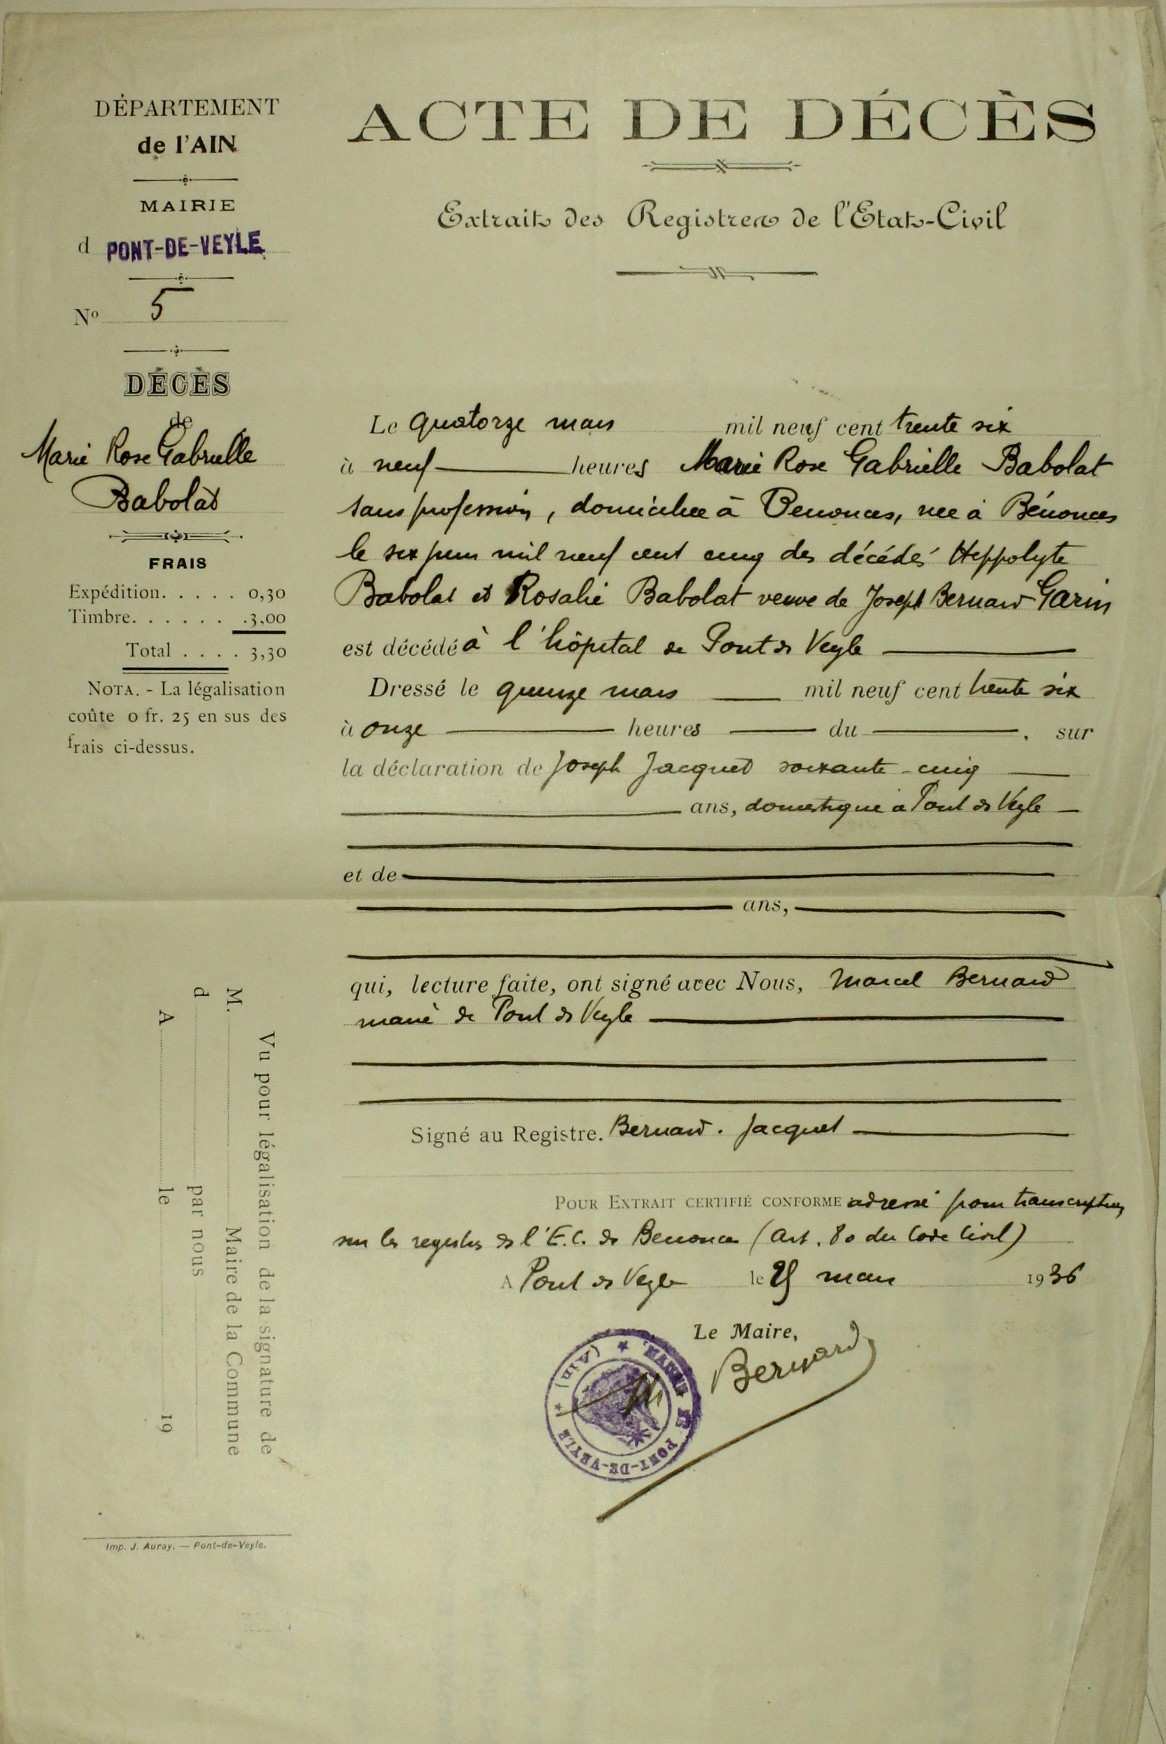 DÉPARTEMENT
de l'AIN
MAIRIE
d PONT-DE-VEYLE
Nº 5
DÉCÈS
de
Marie Rose Gabrielle
Babolat
FRAIS
Expédition. . . . . 0,30
Timbre. . . . . . .3,00
Total . . . . 3,30
NOTA. - La légalisation
coûte 0 fr. 25 en sus des
frais ci-dessus.
ACTE DE DÉCÈS
Extrait des Registres de l'Etat-Civil
Le quatorze mars mil neuf cent trente six
à neuf heures Marie Rose Gabrielle Babolat
sans profession, domiciliée à Benonces, née à Bénonces
le six juin mil neuf cent cinq des décédés Hippolyte
Babolat et Rosalie Babolat veuve de Joseph Bernard Garin
est décédé à l'hôpital de Pont de Veyle
Dressé le quinze mars mil neuf cent trente six
à onze heures du . sur
la déclaration de Joseph Jacquet soixante-cinq
ans, domestique à Pont de Veyle
et de
ans,
qui, lecture faite, ont signé avec Nous, Marcel Bernard
maire de Pont de Veyle
Signé au Registre. Bernard. Jacquet
POUR EXTRAIT CERTIFIÉ CONFORME adressé pour transcription
sur les registres de l'E.C. de Benonces (Art. 80 du Code Civil)
A Pont de Veyle le mars 1936
Le Maire,
Bernard
MAIRIE DE PONT-DE-VEYLE ★ (AIN) ★
Vu pour légalisation de la signature de
M. Maire de la Commune
d par nous
A le 19
Imp. J. Auray. — Pont-de-Veyle.